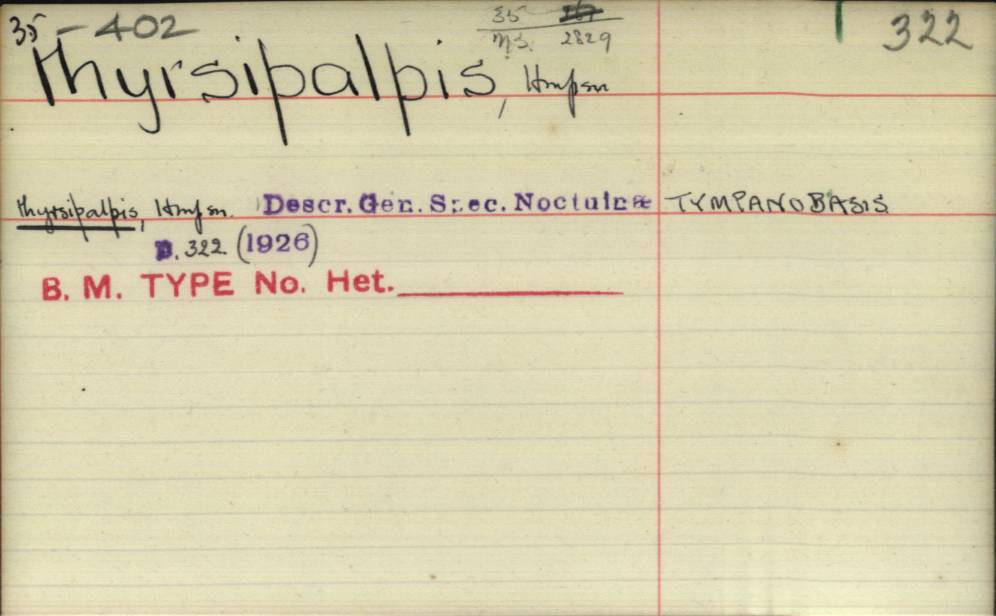 35 - 402
35
NS. 2829
322
thyrsipalpis, Hmpsn
thyrsipalpis, Hmpsn. Descr. Gen. Spec. Noctuinæ TYMPANOBASIS
p. 322 (1926)
B. M. TYPE No. Het.